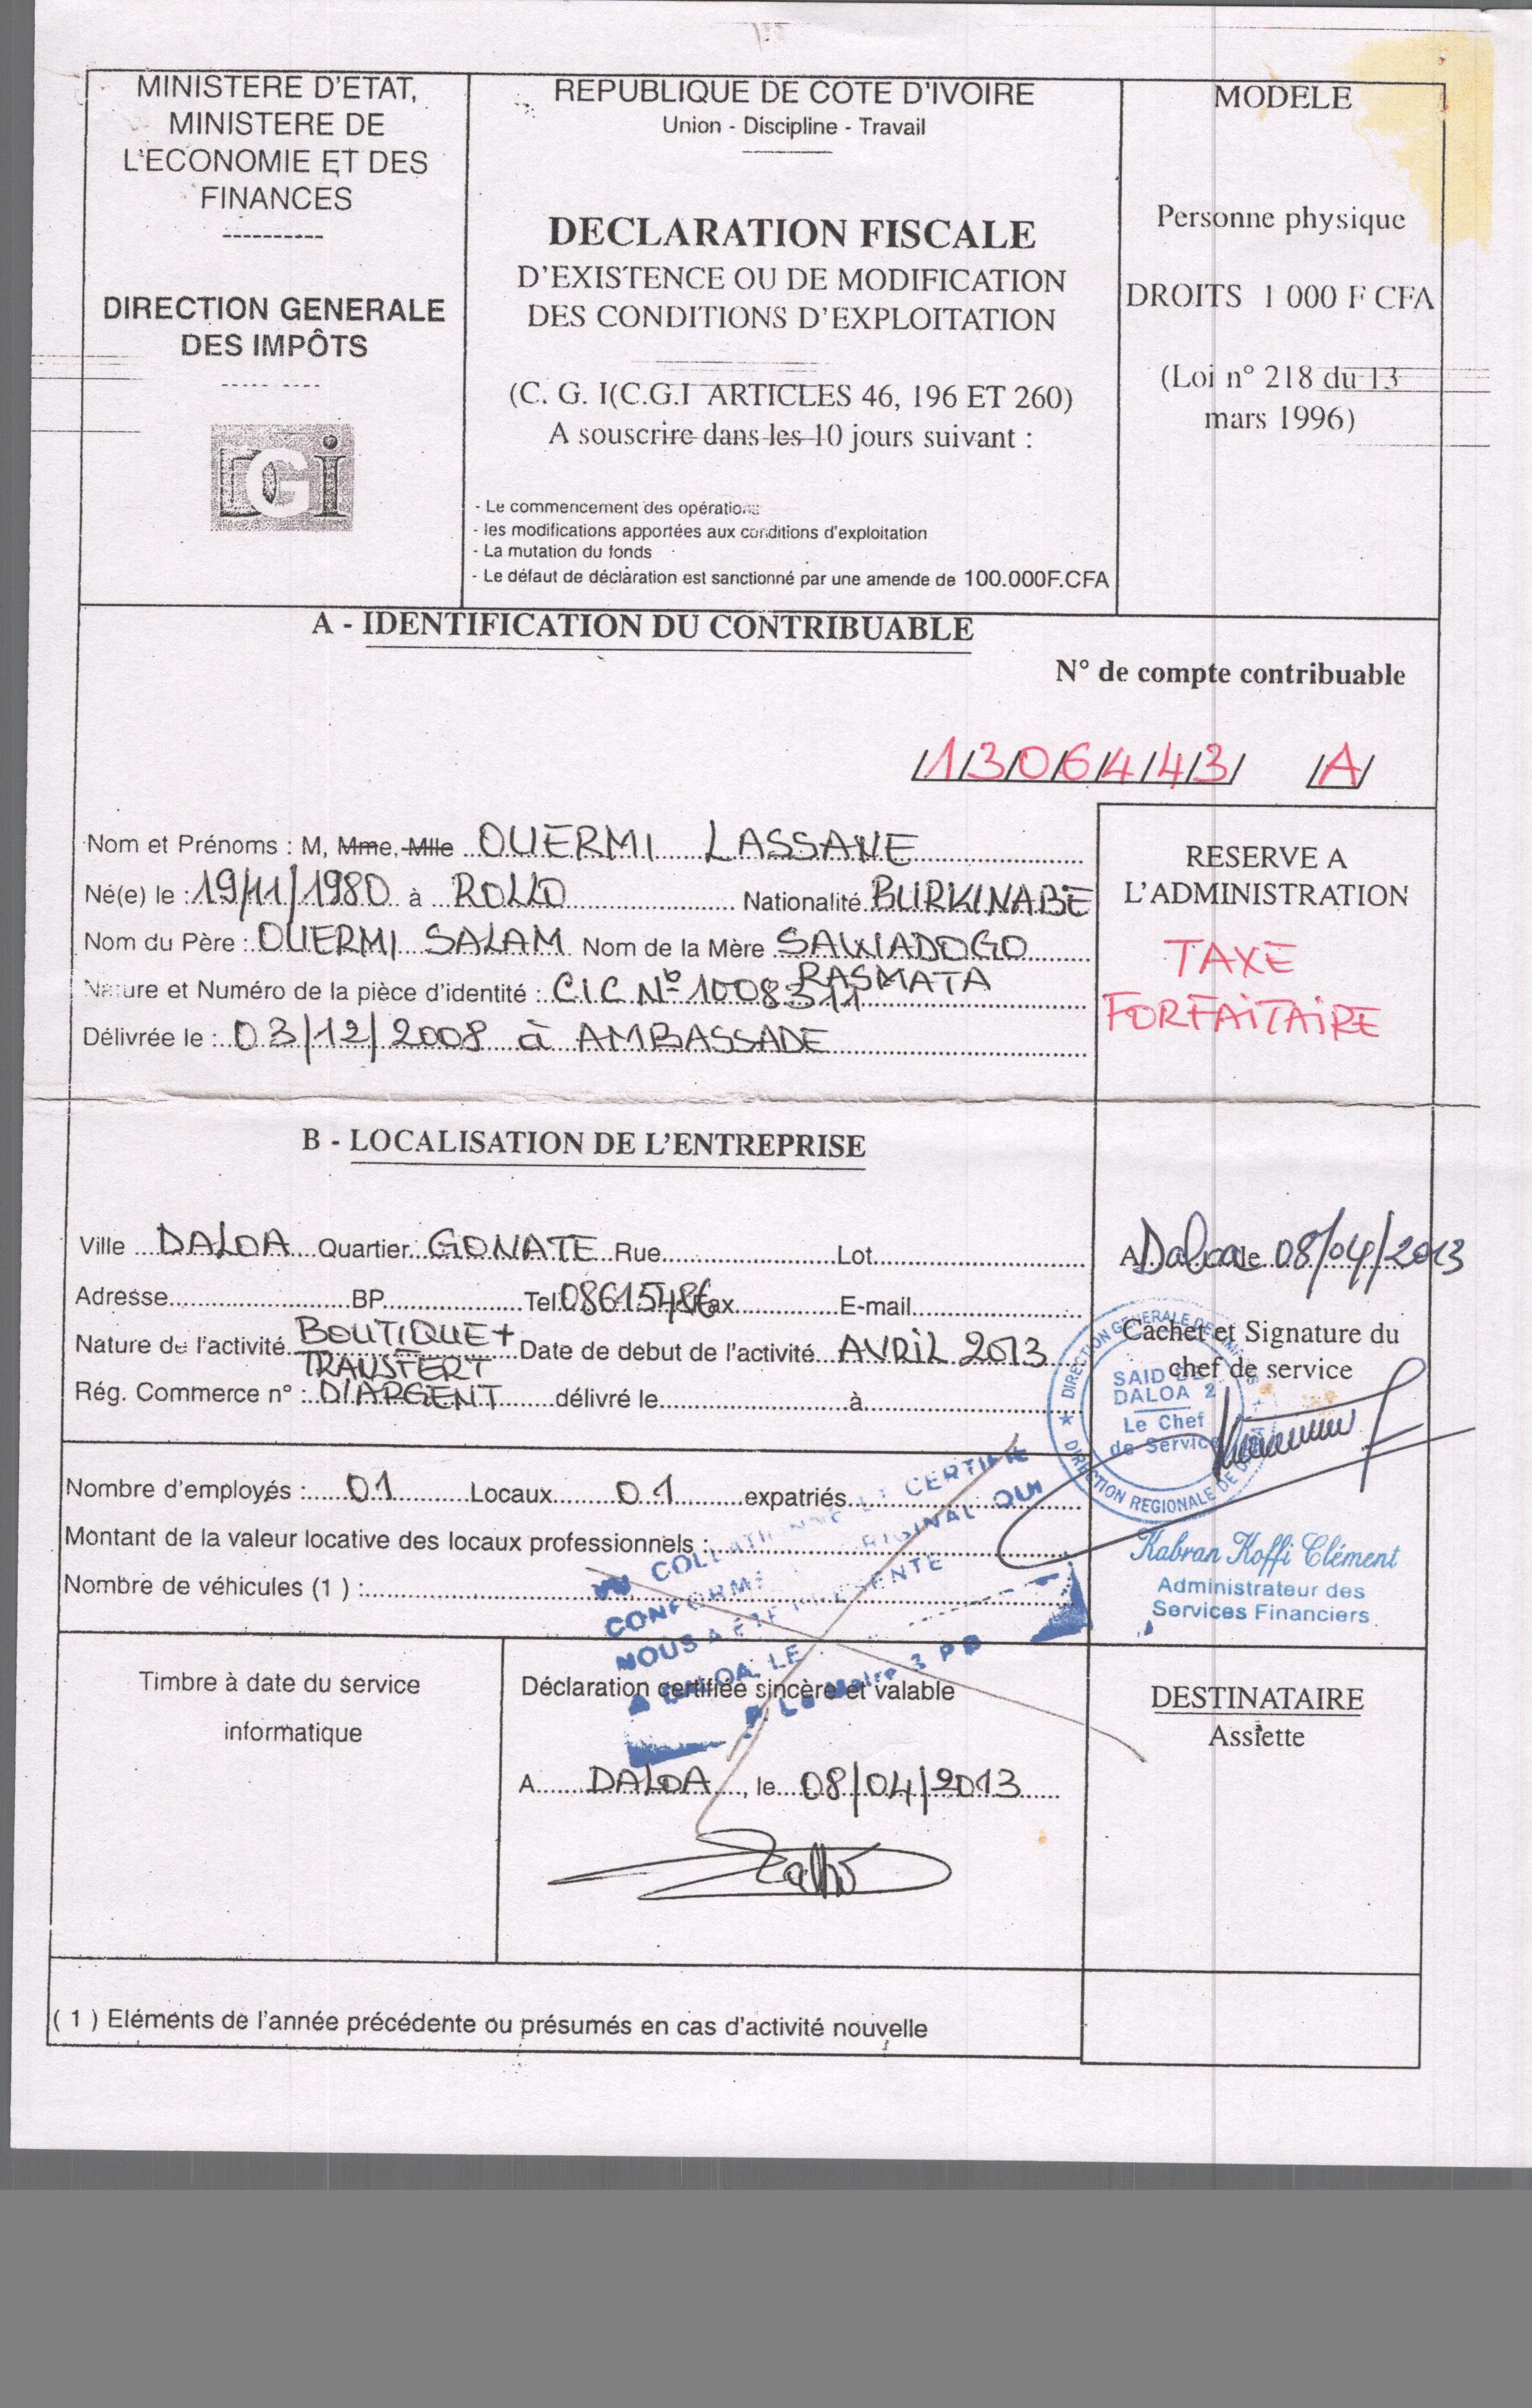 MINISTERE D'ETAT,
MINISTERE DE
L'ECONOMIE ET DES
FINANCES
----------
DIRECTION GENERALE
DES IMPÔTS
----------
DGi
REPUBLIQUE DE COTE D'IVOIRE
Union - Discipline - Travail
DECLARATION FISCALE
D'EXISTENCE OU DE MODIFICATION
DES CONDITIONS D'EXPLOITATION
(C. G. I(C.G.I ARTICLES 46, 196 ET 260)
A souscrire dans les 10 jours suivant :
- Le commencement des opérations
- les modifications apportées aux conditions d'exploitation
- La mutation du fonds
- Le défaut de déclaration est sanctionné par une amende de 100.000F.CFA
MODELE
Personne physique
DROITS 1 000 F CFA
(Loi n° 218 du 13
mars 1996)
A - IDENTIFICATION DU CONTRIBUABLE
N° de compte contribuable
/1/3/0/6/4/4/3/ /A/
Nom et Prénoms : M, Mme, Mlle OUERMI LASSANE
Né(e) le : 19/11/1980 à ROLLO Nationalité BURKINABE
Nom du Père : OUERMI SALAM Nom de la Mère SAWADOGO
RASMATA
Nature et Numéro de la pièce d'identité : C.I.C N° 1008311
Délivrée le : 03/12/2008 à AMBASSADE
RESERVE A
L'ADMINISTRATION
TAXE
FORFAITAIRE
B - LOCALISATION DE L'ENTREPRISE
Ville DALOA Quartier GONATE Rue Lot
Adresse BP Tel 08615486 Fax E-mail
Nature de l'activité BOUTIQUE + Date de debut de l'activité AVRIL 2013
TRANSFERT
Rég. Commerce n° : D'ARGENT délivré le à
A Daloa le 08/04/2013
Cachet et Signature du
chef de service
DIRECTION GENERALE DES IMPOTS
SAID DE
DALOA 2
Le Chef
de Service
DIRECTION REGIONALE DE
Kabran Koffi Clément
Administrateur des
Services Financiers
Nombre d'employés : 01 Locaux 01 expatriés
Montant de la valeur locative des locaux professionnels :
Nombre de véhicules (1 ) :
VU COLLATIONNE ET CERTIFIE
CONFORME ORIGINAL QUI
NOUS A ÉTÉ PRESENTE
A DALOA, LE
P. Le Maire 3 PB
Timbre à date du service
informatique
Déclaration certifiée sincère et valable
A DALOA, le 08/04/2013
DESTINATAIRE
Assiette
( 1 ) Eléments de l'année précédente ou présumés en cas d'activité nouvelle